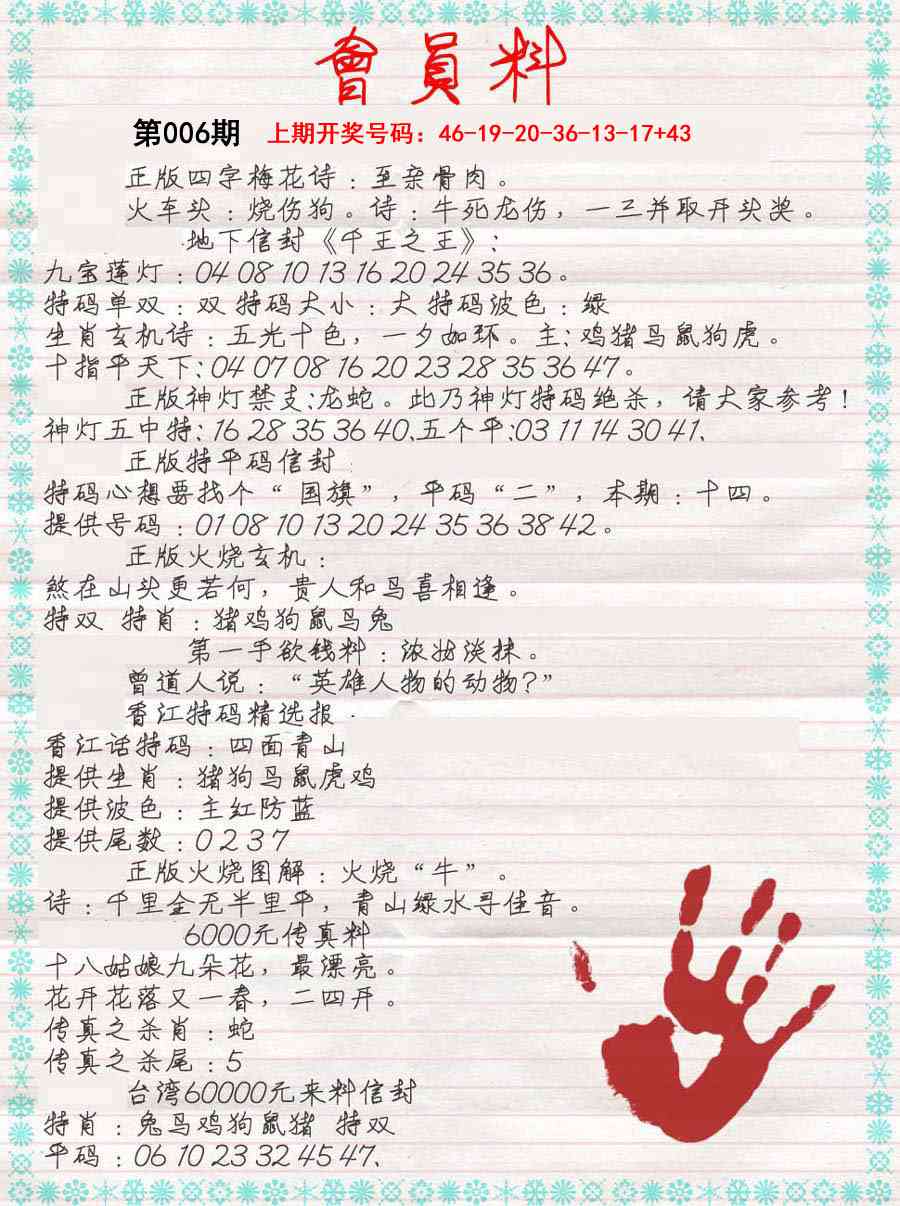 會員料
第006期 上期开奖号码：46-19-20-36-13-17+43
正版四字梅花诗：至亲骨肉。
火车头：烧伤狗。诗：牛死龙伤，一三并取开头奖。
地下信封《千王之王》：
九宝莲灯：04 08 10 13 16 20 24 35 36。
特码单双：双 特码大小：大 特码波色：绿
生肖玄机诗：五光十色，一夕如环。主：鸡猪马鼠狗虎。
十指平天下：04 07 08 16 20 23 28 35 36 47。
正版神灯禁支：龙蛇。此乃神灯特码绝杀，请大家参考！
神灯五中特：16 28 35 36 40、五个平：03 11 14 30 41、
正版特平码信封：
特码心想要找个“国旗”，平码“二”，本期：十四。
提供号码：01 08 10 13 20 24 35 36 38 42。
正版火烧玄机：
煞在山头更若何，贵人和马喜相逢。
特双 特肖：猪鸡狗鼠马兔
第一手欲钱料：浓妆淡抹。
曾道人说：“英雄人物的动物？”
香江特码精选报．
香江话特码：四面青山
提供生肖：猪狗马鼠虎鸡
提供波色：主红防蓝
提供尾数：0 2 3 7
正版火烧图解：火烧“牛”。
诗：千里金无半里平，青山绿水寻佳音。
6000元传真料
十八姑娘九朵花，最漂亮。
花开花落又一春，二四开。
传真之杀肖：蛇
传真之杀尾：5
台湾60000元来料信封
特肖：兔马鸡狗鼠猪 特双
平码：06 10 23 32 45 47、